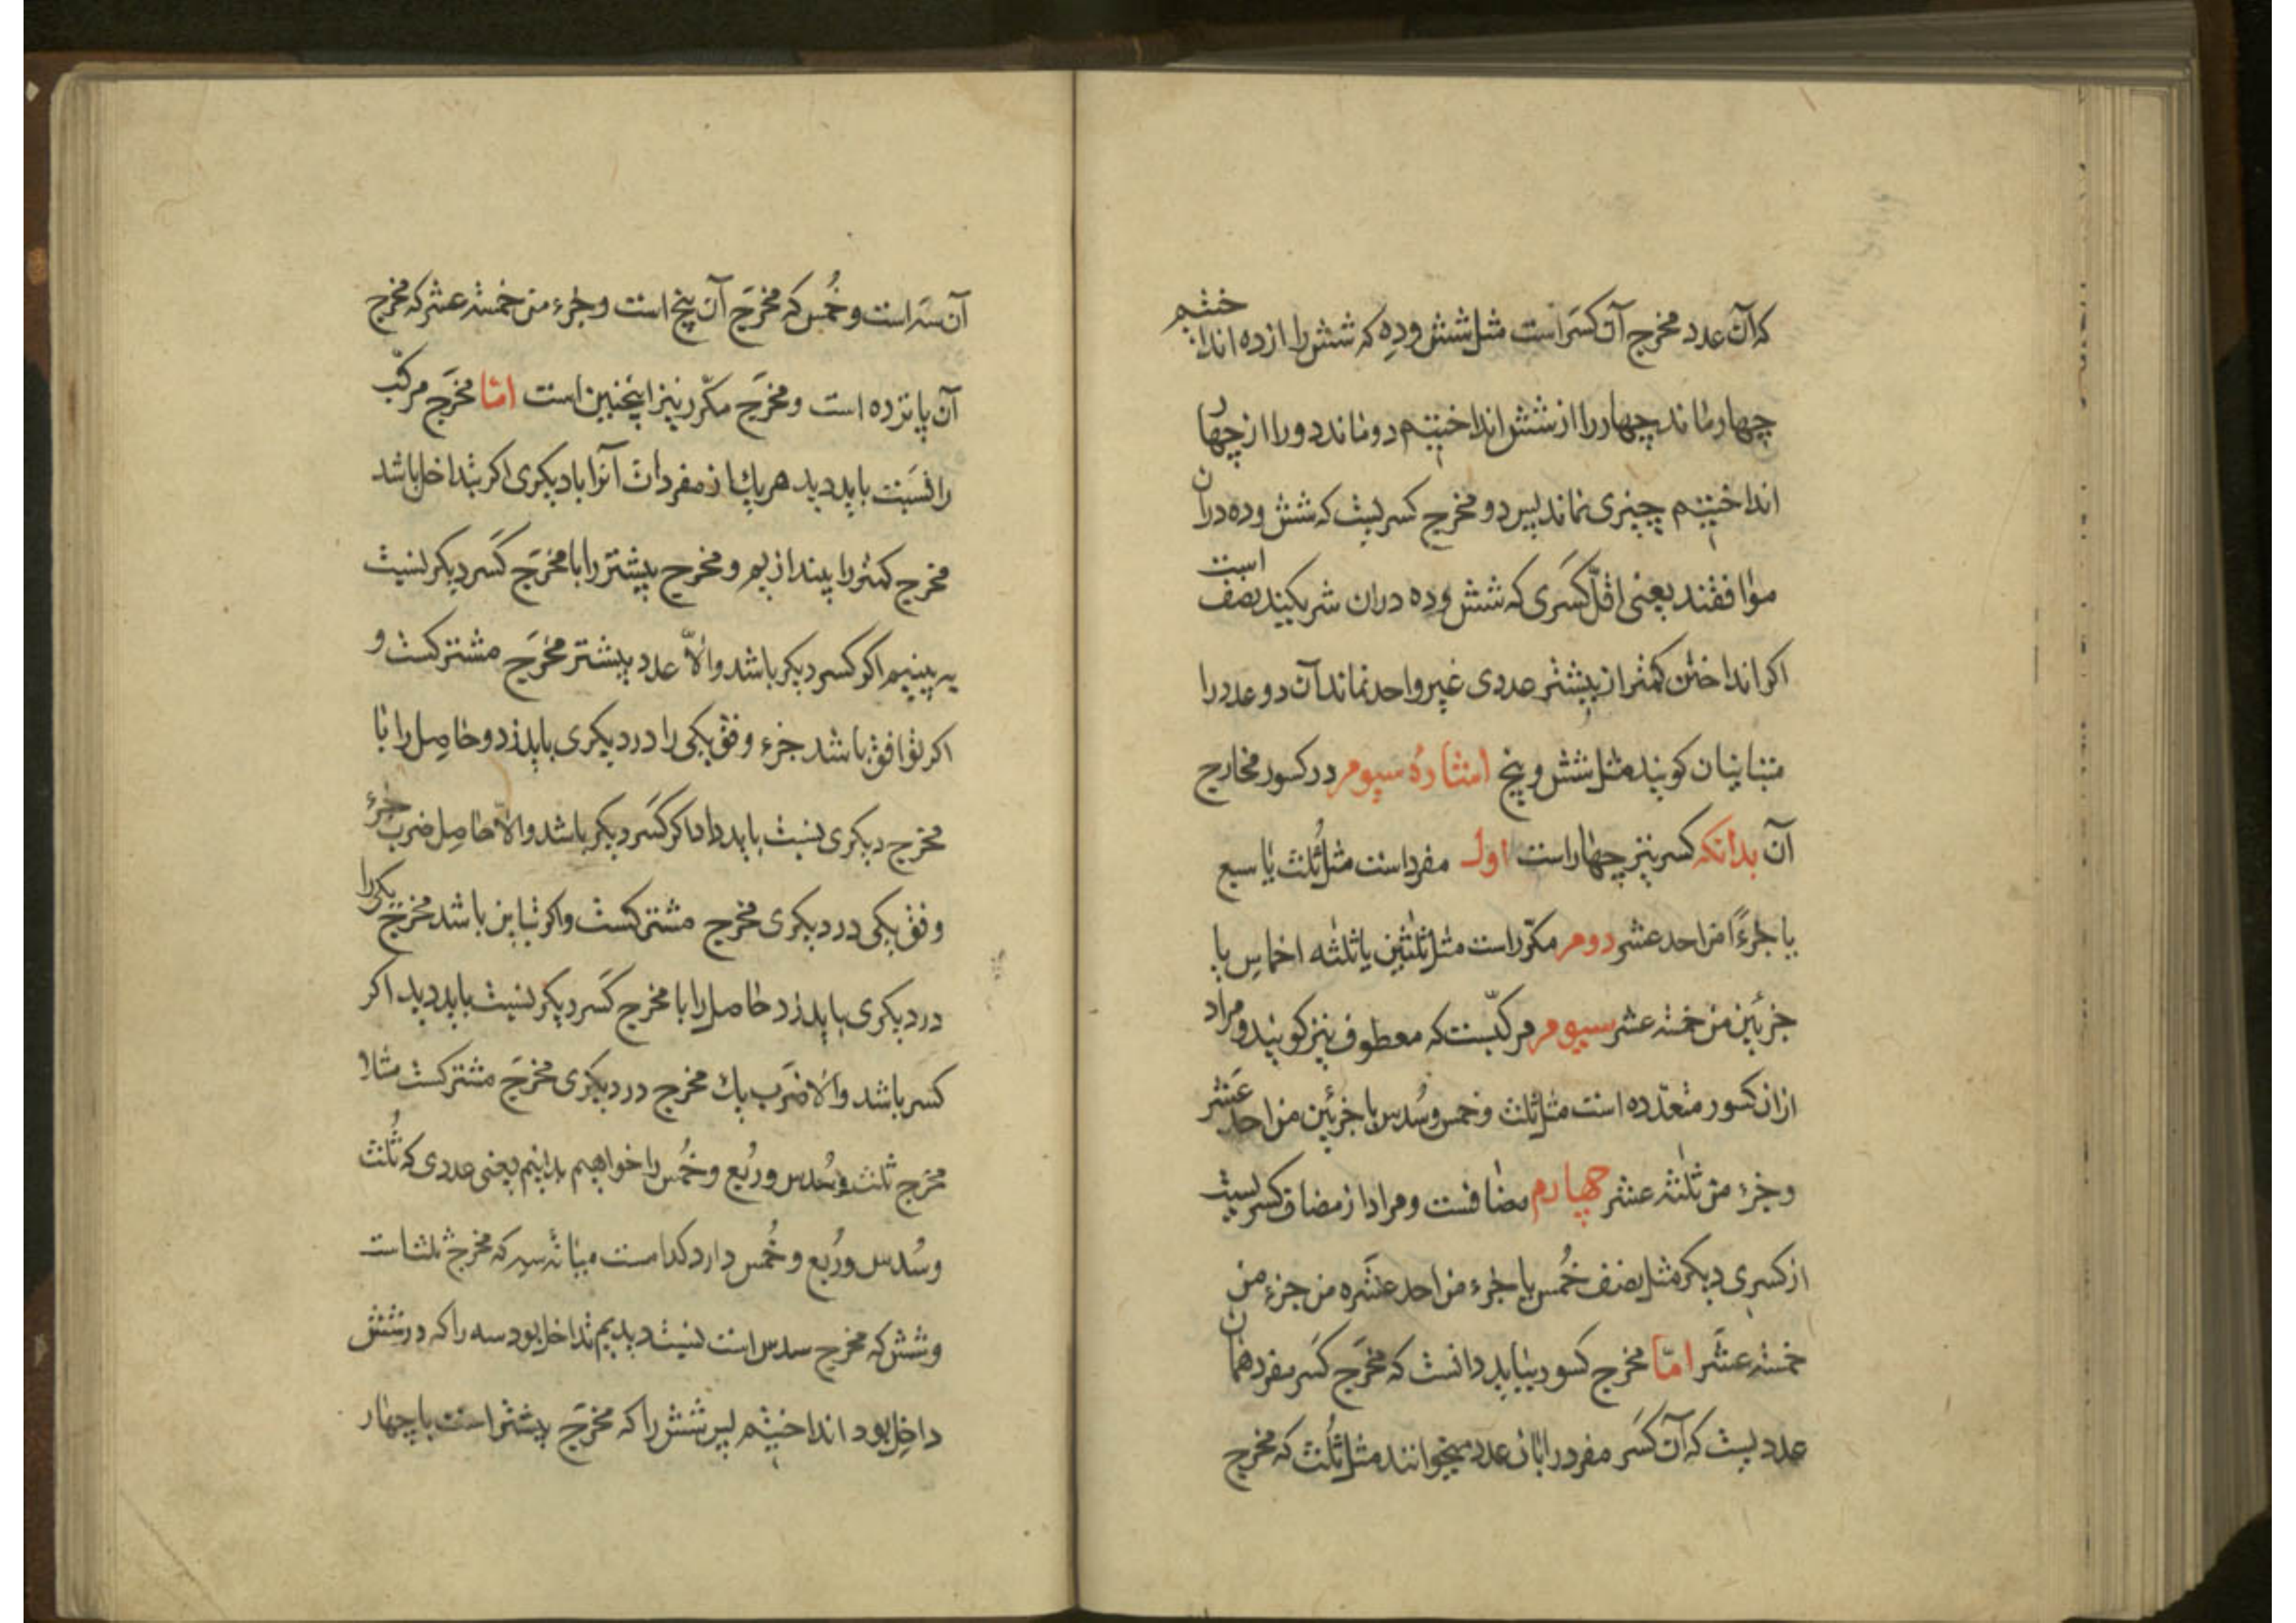 که آن عدد مخرج آن کسر است مثل شش و ده که شش را از ده انداختیم
چهار ماند چهار را از شش انداختیم دو ماند دو را از چهار
انداختیم چیزی نماند پس دو مخرج کسریست که شش و ده در آن
موافقند یعنی اقلّ کسری که شش و ده در آن شریکیند نصف است
اکر انداختن کمتر از بیشتر عددی غیر واحد نماند آن دو عدد را
متباینان کویند مثل شش و پنج اشاره سیوم در کسور مخارج
آن بدانکه کسر نیز چهار است اول مفرد است مثل ثُلث یا سبع
یا جزءً من احد عشر دوم مکرّر است مثل ثلثین یا ثلثه اخماس یا
جزئین من خمسة عشر سیوم مرکّبست که معطوف نیز کویند و مراد
از آن کسور متعدّده است مثل ثلث و خمس و سُدس یا جزئین من احد عَشر
و جزء من ثلثة عشر چهارم مضافست و مراد از مضاف کسریست
از کسری دیکر مثل نصف خُمس یا جزء من احد عَشره من جزء من
خمسة عشَر امّا مخرج کسور بباید دانست که مخرَج کسَر مفرد همان
عددیست که آن کسَر مفرد را بآن عدد میخوانند مثل ثُلث که مخرج
آن سَه است و خُمس که مخرَج آن پنج است و جزء من خمسة عشر که مخرج
آن پانزده است و مخرَج مکّرر نیز اینچنین است امّا مخرَج مرکّب
را نسَبت باید دید هریک از مفردات آنرا با دیکری اکر تداخل باشد
مخرج کمتر را بیندازیم و مخرج بیشتر را با مخرَج کسَر دیکر نسبت
به بینیم اکر کسر دیکر باشد و الّا عدد بیشتر مخرَج مشترکست و
اکر توافق باشد جزء وفق یکی را در دیکری باید زد و حاصِل را با
مخرج دیکری نسبت باید داد اکر کسَر دیکر باشد و الّا حاصِل ضرب جزء
وفق یکی در دیکری مخرج مشترکست و اکر تباین باشد مخرج یکی را
در دیکری باید زد حاصل را با مخرج کسَر دیکر نسبت باید دید اکر
کسر باشد و الّا ضرَب یک مخرج در دیکری مخرَج مشترکست مثلا
مخرَج ثلث و سُدس و رُبع و خُمس را خواهیم بدانیم یعنی عددی که ثُلث
و سُدس و رُبع و خُمس دارد کدامست میانه سه که مخرج ثلث است
و شش که مخرج سدس است نسبت دیدیم تداخل بود سه را که در شش
داخِل بود انداختیم پس شش را که مخرَج بیشتر است با چهار